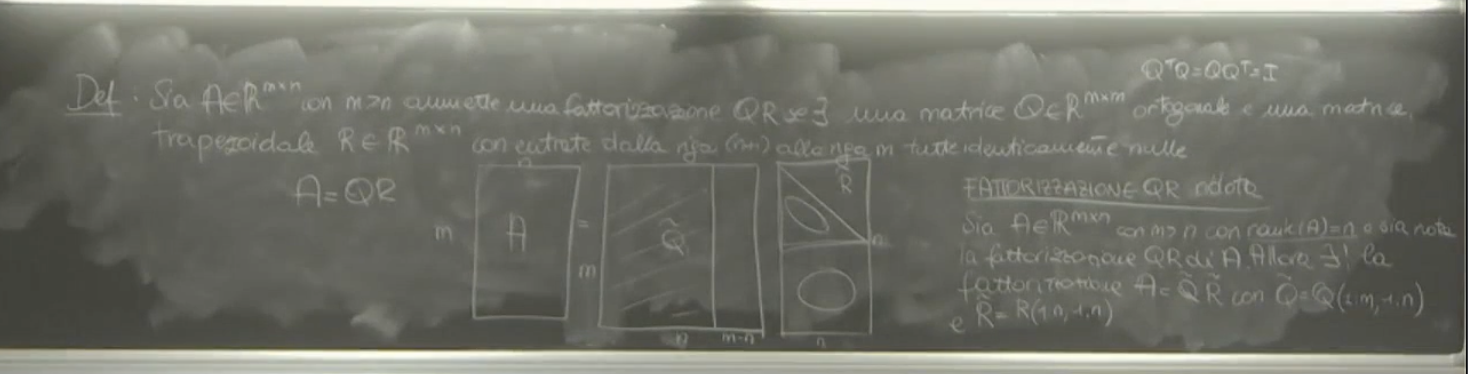 QᵀQ=QQᵀ=I
Def: Sia A∈ℝ^{m×n} con m>n ammette una fattorizzazione QR se ∃ una matrice Q∈ℝ^{m×m} ortogonale e una matrice
trapezoidale R∈ℝ^{m×n} con entrate dalla riga (n+1) alla riga m tutte identicamente nulle
A=QR
n
m
A
=
m
Q̃
n
m-n
R̃
n
n
FATTORIZZAZIONE QR ridotta
Sia A∈ℝ^{m×n} con m>n con rank(A)=n e sia nota
la fattorizzazione QR di A. Allora ∃! la
fattorizzazione A=Q̃R̃ con Q̃=Q(1:m,1:n)
e R̃=R(1:n,1:n)